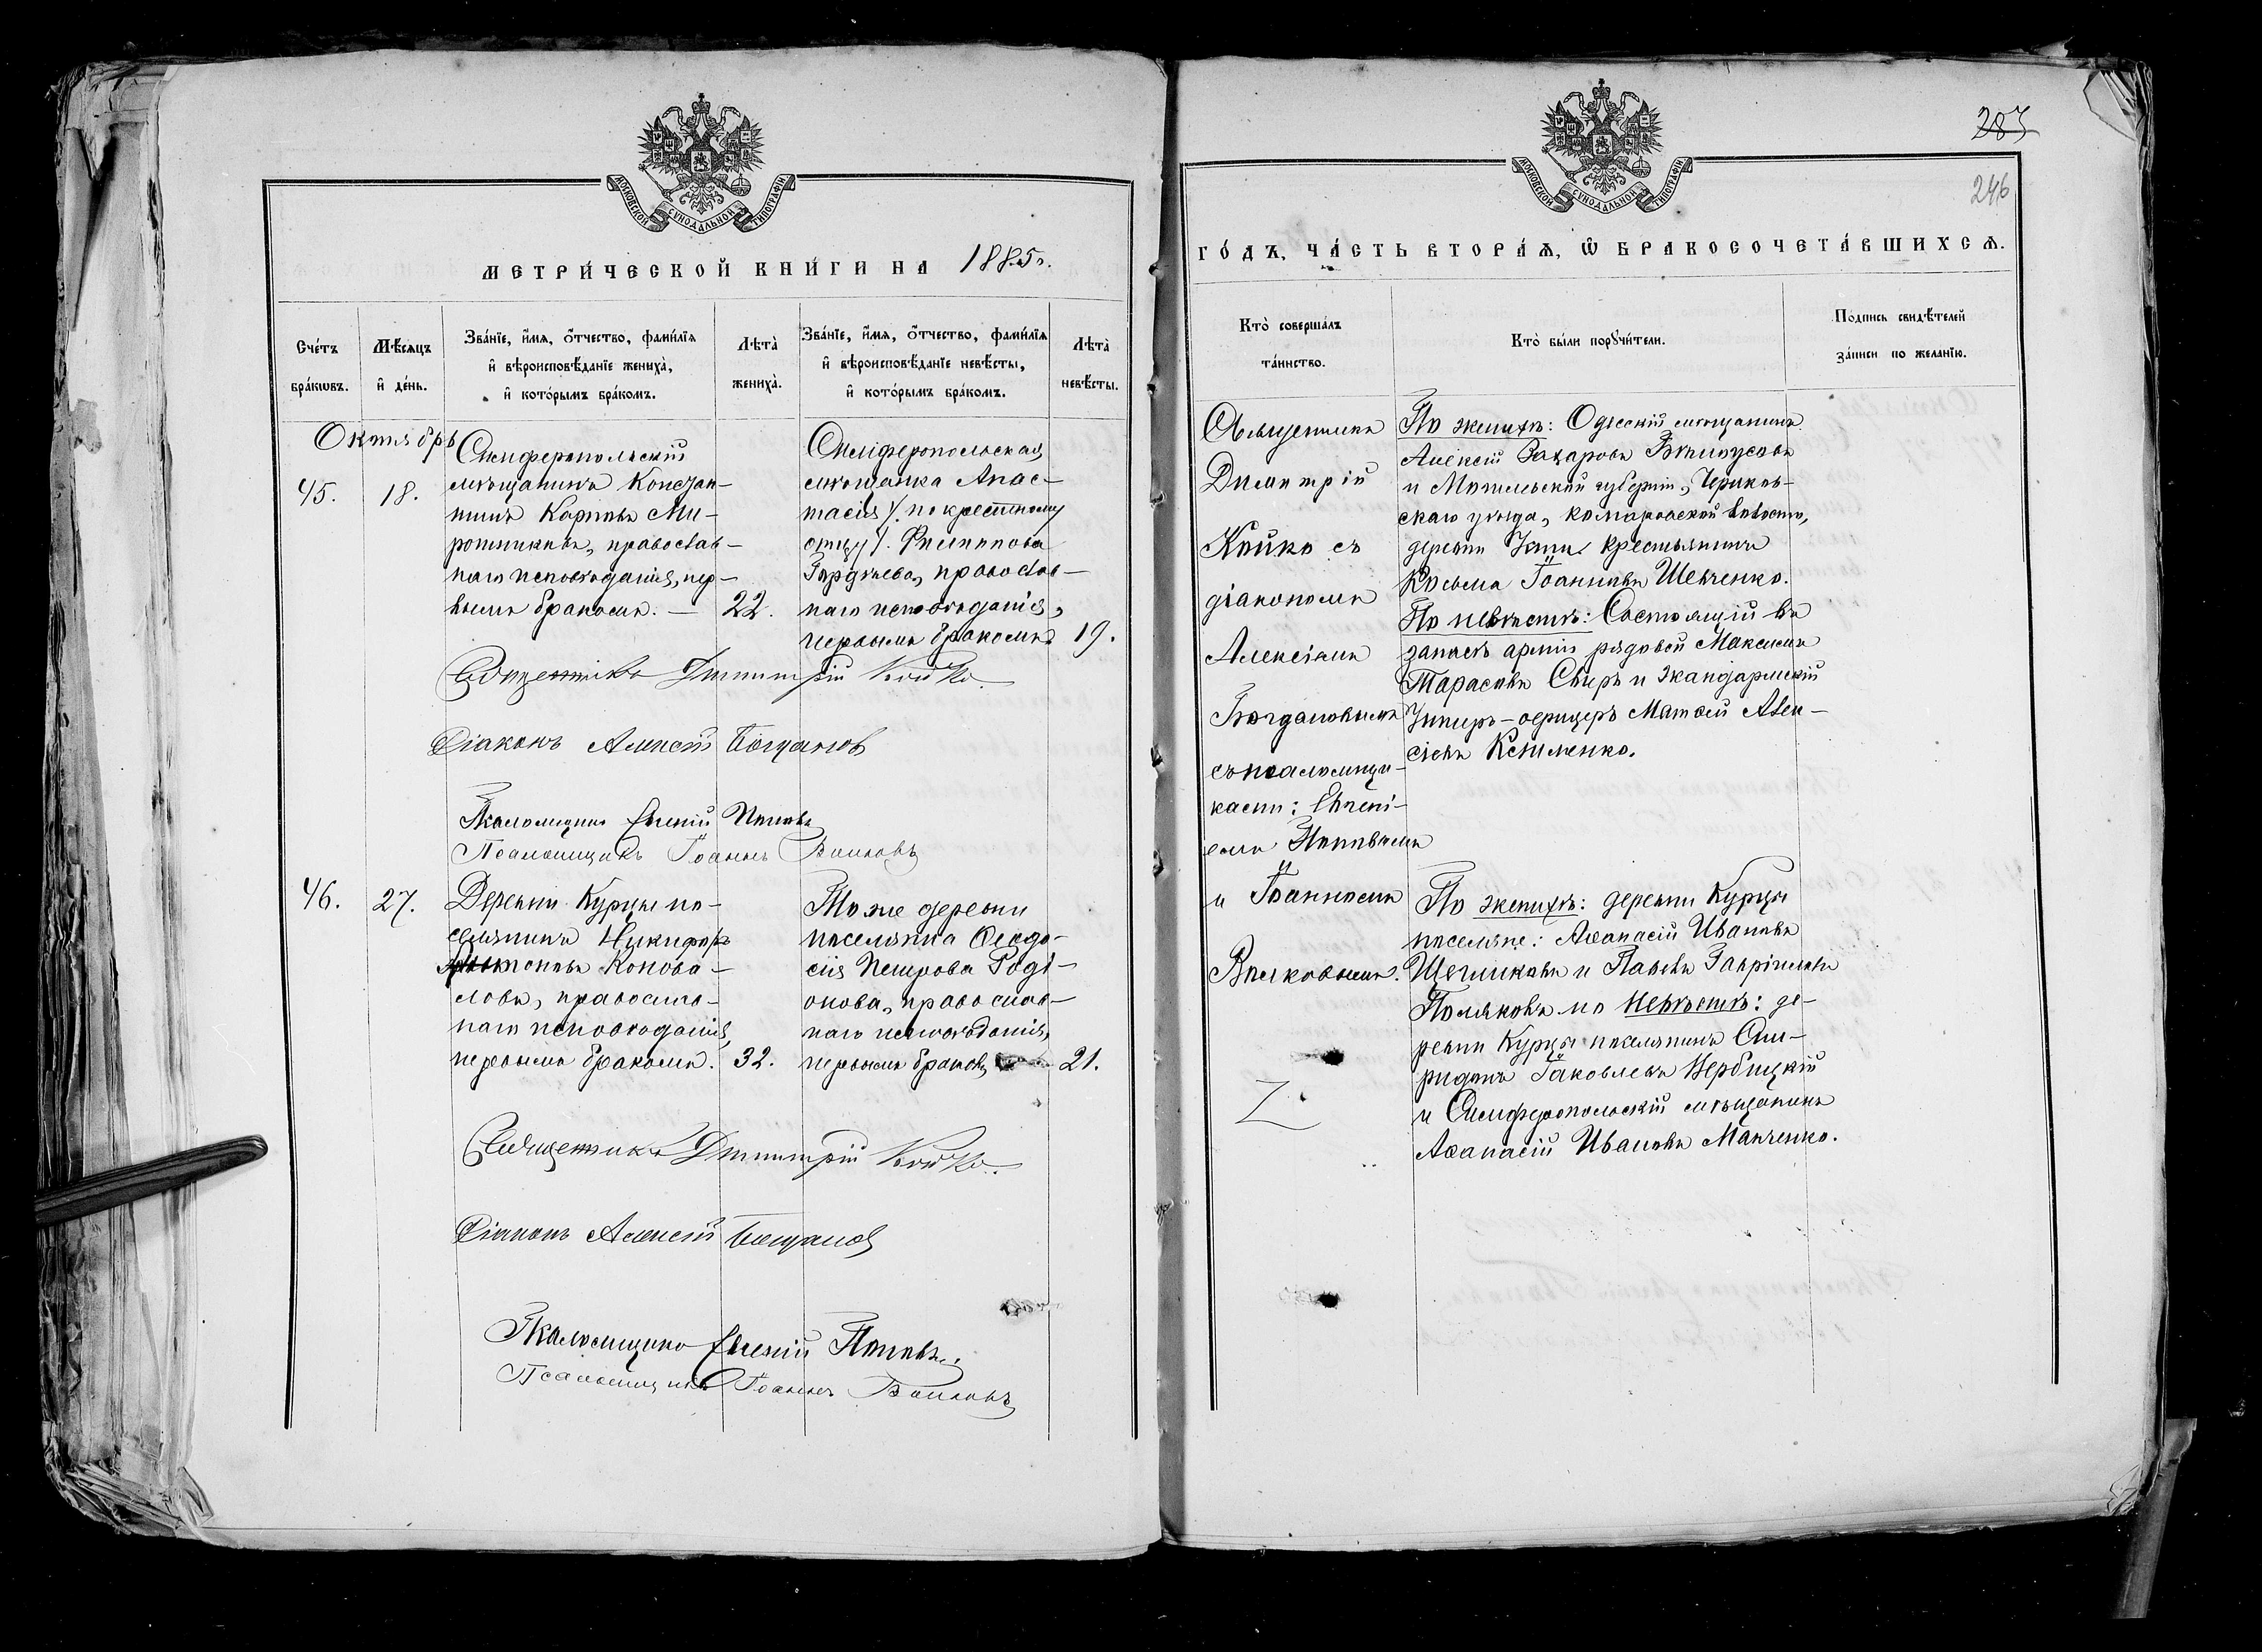 МОСКОВСКОЙ СѴНОДАЛЬНОЙ ТИПОГРАФІИ
МЕТРИ́ЧЕСКОЙ КНИ́ГИ НА 1885 г.
Сче́тъ бра́кωвъ.
Мѣ́сяцъ и҆ де́нь.
Зва́нїе, и҆́мя, о҆́тчество, фами́лїя
и҆ вѣроисповѣ́данїе жениха̀,
и҆ кото́рымъ бра́комъ.
Лѣ́та жениха̀.
Зва́нїе, и҆́мя, о҆́тчество, фами́лїя
и҆ вѣроисповѣ́данїе невѣ́сты,
и҆ кото́рымъ бра́комъ.
Лѣ́та невѣ́сты.
Октябрь
45.
18.
Симферопольскій
мѣщанинъ Констан-
тинъ Карповъ Ми-
рошниковъ, православ-
наго исповѣданія, пер-
вымъ бракомъ. —
22.
Симферопольская
мѣщанка Анас-
тасія /. по крестному
отцу /. Филиппова
Гордѣева, православ-
наго исповѣданія,
первымъ бракомъ
19.
Священникъ Димитрій Койко.
Діаконъ Алексій Богдановъ
Псаломщикъ Евгеній Поповъ
Псаломщикъ Іоаннъ Волковъ
46.
27.
Деревни Курцы по-
селянинъ Никифоръ
Антоновъ Конова-
ловъ, православ-
наго исповѣданія,
первымъ бракомъ.
32.
Тоже деревни
поселянка Ѳеодо-
сія Петрова Роді-
онова, православ-
наго исповѣданія,
первымъ бракомъ
21.
Священникъ Димитрій Койко.
Діаконъ Алексій Богдановъ
Псаломщикъ Евгеній Поповъ.
Псаломщикъ Іоаннъ Волковъ
285
246
МОСКОВСКОЙ СѴНОДАЛЬНОЙ ТИПОГРАФІИ
ГО́ДЪ, ЧА́СТЬ ВТОРА́Я, Ѽ БРАКОСОЧЕТА́ВШИХСЯ.
Кто̀ соверша́лъ
та́инство.
Кто̀ бы́ли порꙋчи́тели.
По́дпись свидѣ́телей
за́писи по жела́нїю.
Священникъ
Димитрій
Койко съ
діакономъ
Алексіемъ
Богдановымъ
съ псаломщи-
ками: Евгені-
емъ Поповымъ
и Іоанномъ
Волковымъ.
По женихѣ: Одесскій мѣщанинъ
Алексій Захаровъ
и Могилевской губерніи, Чериков-
скаго уѣзда, комаровской волости,
деревни крестьянинъ
Косьма Іоанновъ Шевченко.
По невѣстѣ: Состоящій въ
запасѣ арміи рядовой Максимъ
Тарасовъ Свирь и жандармскій
Унтеръ-офицеръ Матѳей Алек-
сіевъ
По женихѣ: деревни Курцы
поселяне: Аѳанасій Ивановъ
Щегликовъ и Павелъ Гавріиловъ
Поляковъ по невѣстѣ: де-
ревни Курцы поселянинъ Спи-
ридонъ Іаковлевъ Вербицкій
и Симферопольскій мѣщанинъ
Аѳанасій Ивановъ Манченко.